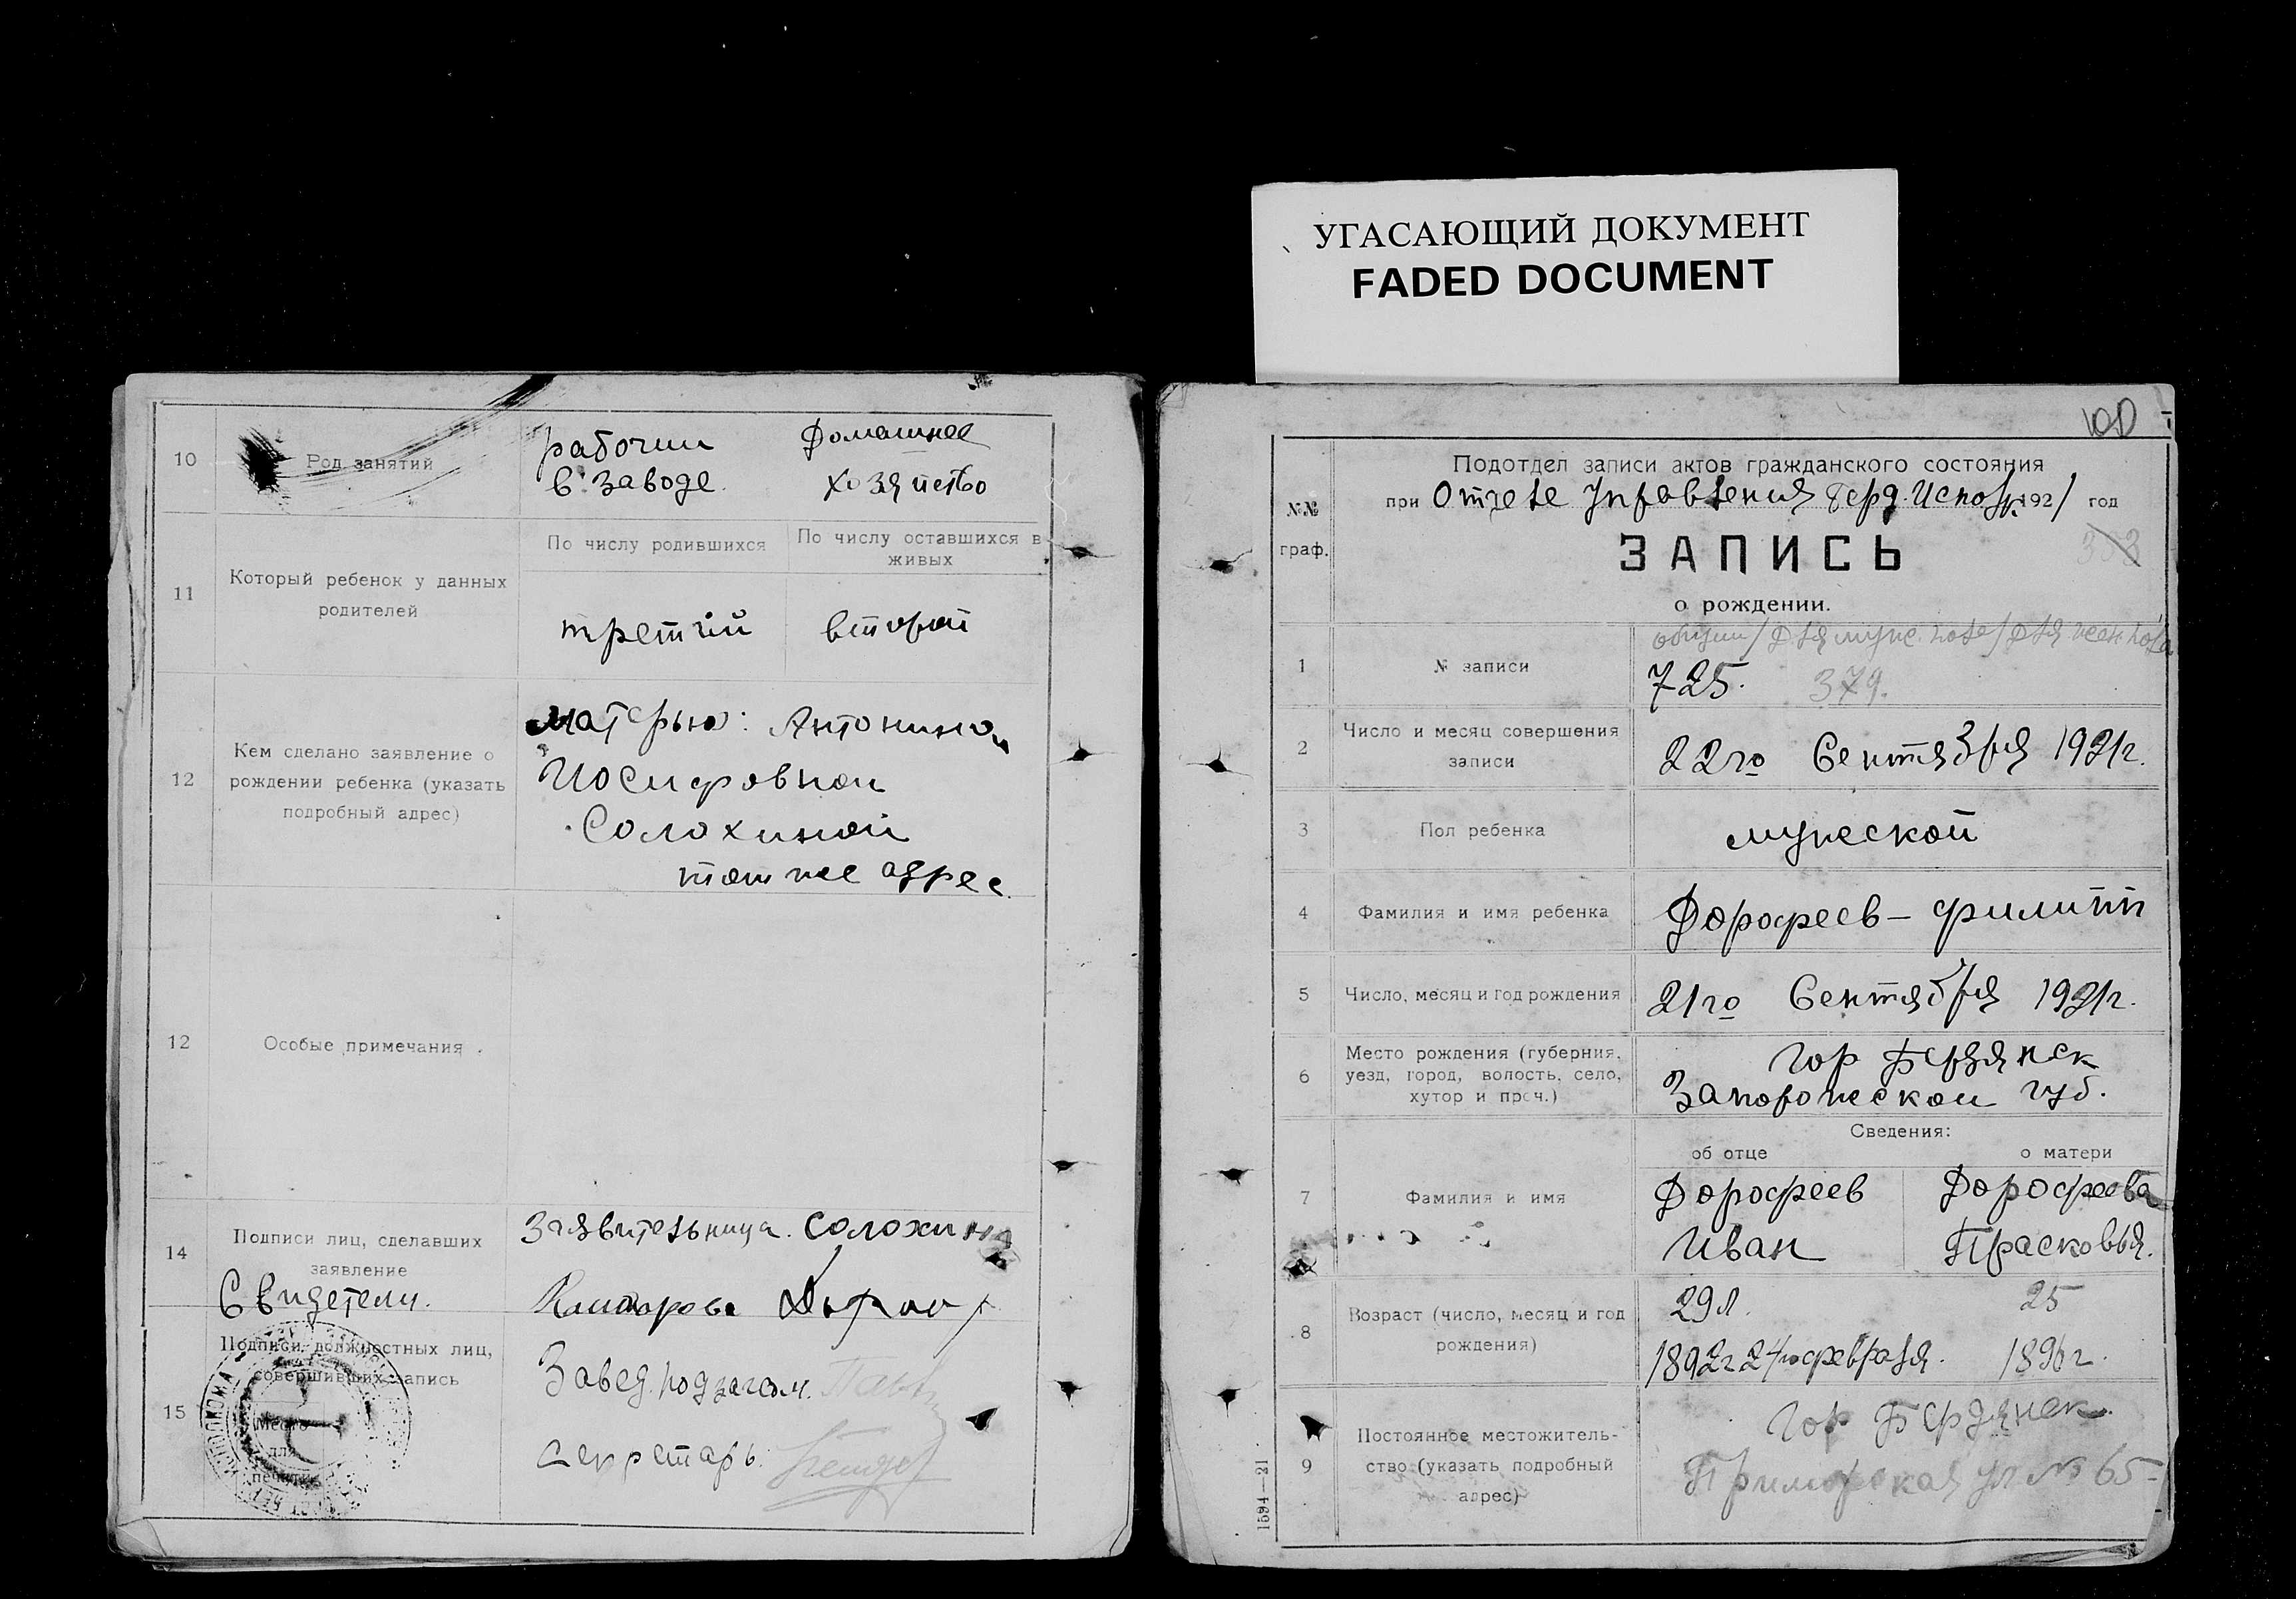 УГАСАЮЩИЙ ДОКУМЕНТ
FADED DOCUMENT
10
Род занятий
рабочий
в заводе.
Домашнее
хозяйство
11
Который ребенок у данных
родителей
По числу родившихся
По числу оставшихся в
живых
третий
второй
12
Кем сделано заявление о
рождении ребенка (указать
подробный адрес)
Матерью: Антониной
Иосифовной
Солохиной
тот же адрес.
12
Особые примечания
14
Подписи лиц, сделавших
заявление
Свидетели.
Заявительница. Солохина
15
Подписи должностных лиц,
совершивших запись
Место
для
печати
Завед. подзагсом.
Секретарь:
100
№№
граф.
Подотдел записи актов гражданского состояния
при Отделе Управления Берд. Исполк. 1921 год
ЗАПИСЬ
353
о рождении.
общий / для муж. пола / для жен. пола
1
№ записи
725. 379.
2
Число и месяц совершения
записи
22го Сентября 1921г.
3
Пол ребенка
мужеской
4
Фамилия и имя ребенка
Дорофеев - Филипп
5
Число, месяц и год рождения
21го Сентября 1921г.
6
Место рождения (губерния,
уезд, город, волость, село,
хутор и проч.)
Гор Бердянск
Запорожской губ.
Сведения:
об отце
о матери
7
Фамилия и имя
Дорофеев
Иван
Дорофеева
Прасковья.
8
Возраст (число, месяц и год
рождения)
29л.
1892г 24го февраля.
25
1896г.
9
Постоянное местожитель-
ство (указать подробный
адрес)
Гор Бердянск.
Приморская ул № 65-
1594—21